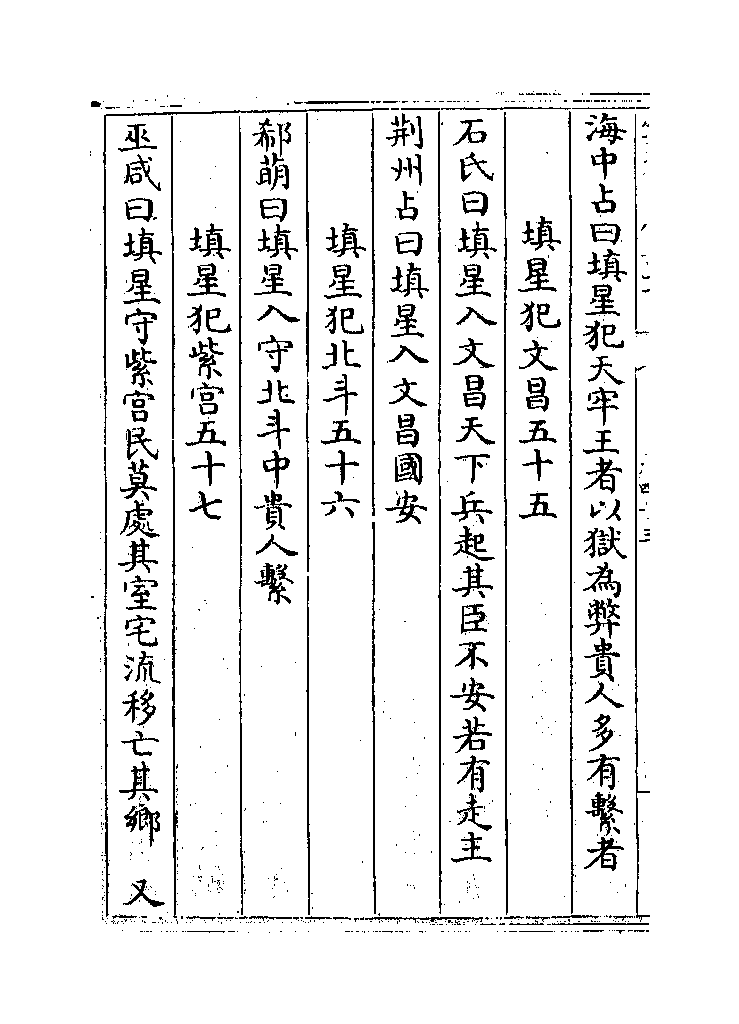 海中占曰填星犯天牢王者以獄為弊貴人多有繫者
填星犯文昌五十五
石氏曰填星入文昌天下兵起其臣不安若有走主
荆州占曰填星入文昌國安
填星犯北斗五十六
郗萌曰填星入守北斗中貴人繫
填星犯紫宫五十七
巫咸曰填星守紫宫民莫處其室宅流移亡其鄉　又